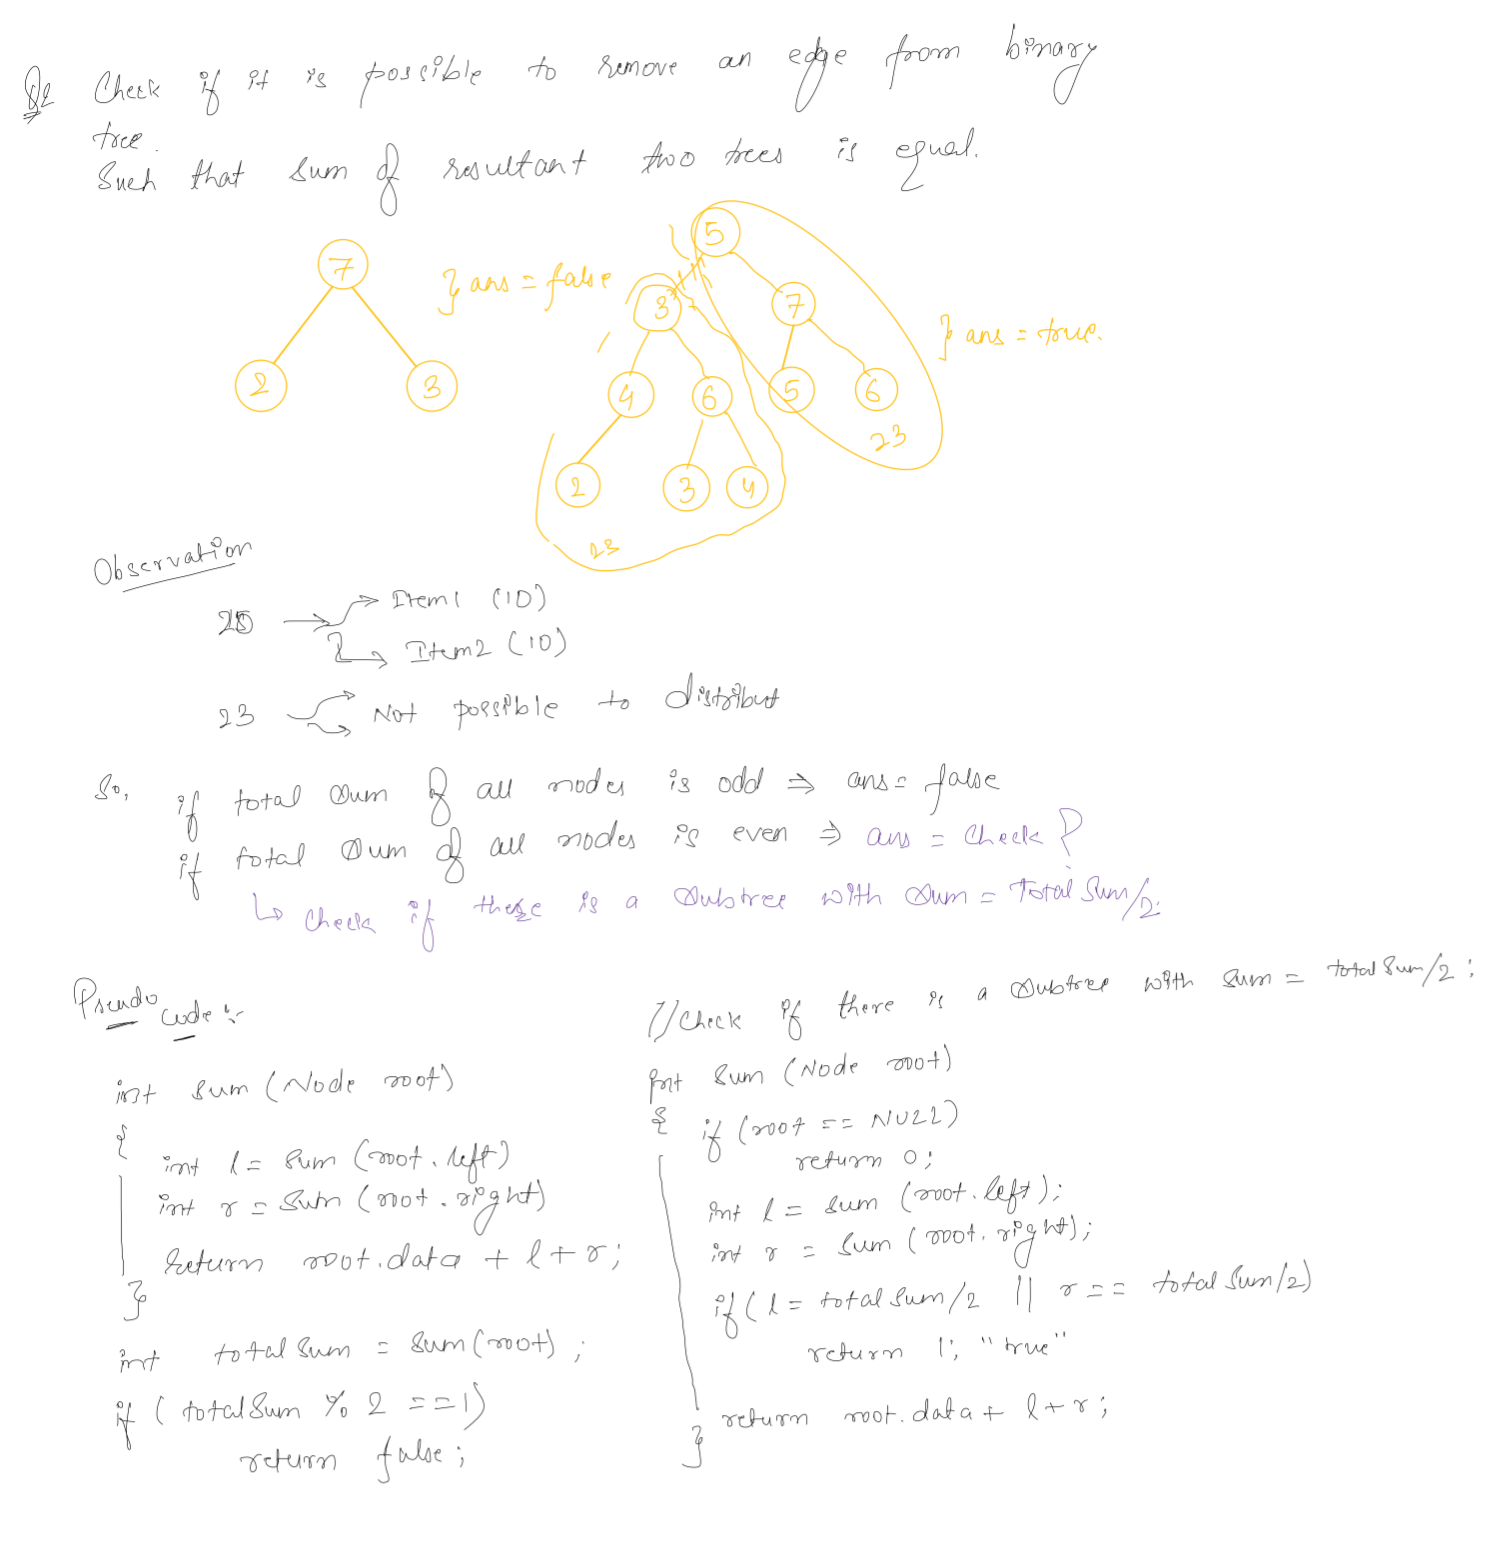 Q2 Check if it is possible to remove an edge from binary
tree.
Such that sum of resultant two trees is equal.
7
2 3
} ans = false
5
3 7
4 6 5 6
2 3 4
23
23
} ans = true.
Observation
20 → Item1 (10)
Item2 (10)
23 Not possible to distribut
So, if total sum of all nodes is odd ⇒ ans = false
if total sum of all nodes is even ⇒ ans = Check?
↳ Check if there is a subtree with sum = Total Sum/2.
Pseudo code :-
int sum (Node root)
{
int l = sum (root.left)
int r = sum (root.right)
return root.data + l + r;
}
int total Sum = sum(root);
if (total Sum % 2 ==1)
return false;
// Check if there is a subtree with sum = total Sum/2;
int sum (Node root)
{ if (root == NULL)
return 0;
int l = sum (root.left);
int r = sum (root.right);
if (l = total Sum/2 || r == total Sum/2)
return 1; "true"
return root.data + l + r;
}